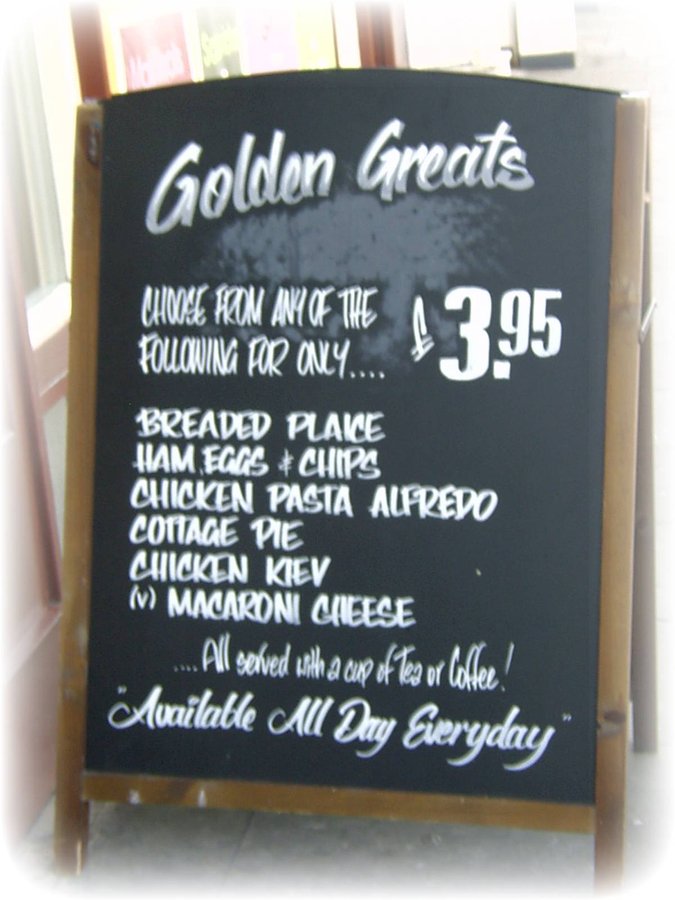 Golden Greats
CHOOSE FROM ANY OF THE
FOLLOWING FOR ONLY....
£3.95
BREADED PLAICE
HAM, EGGS & CHIPS
CHICKEN PASTA ALFREDO
COTTAGE PIE
CHICKEN KIEV
(V) MACARONI CHEESE
....All served with a cup of Tea or Coffee!
"Available All Day Everyday"